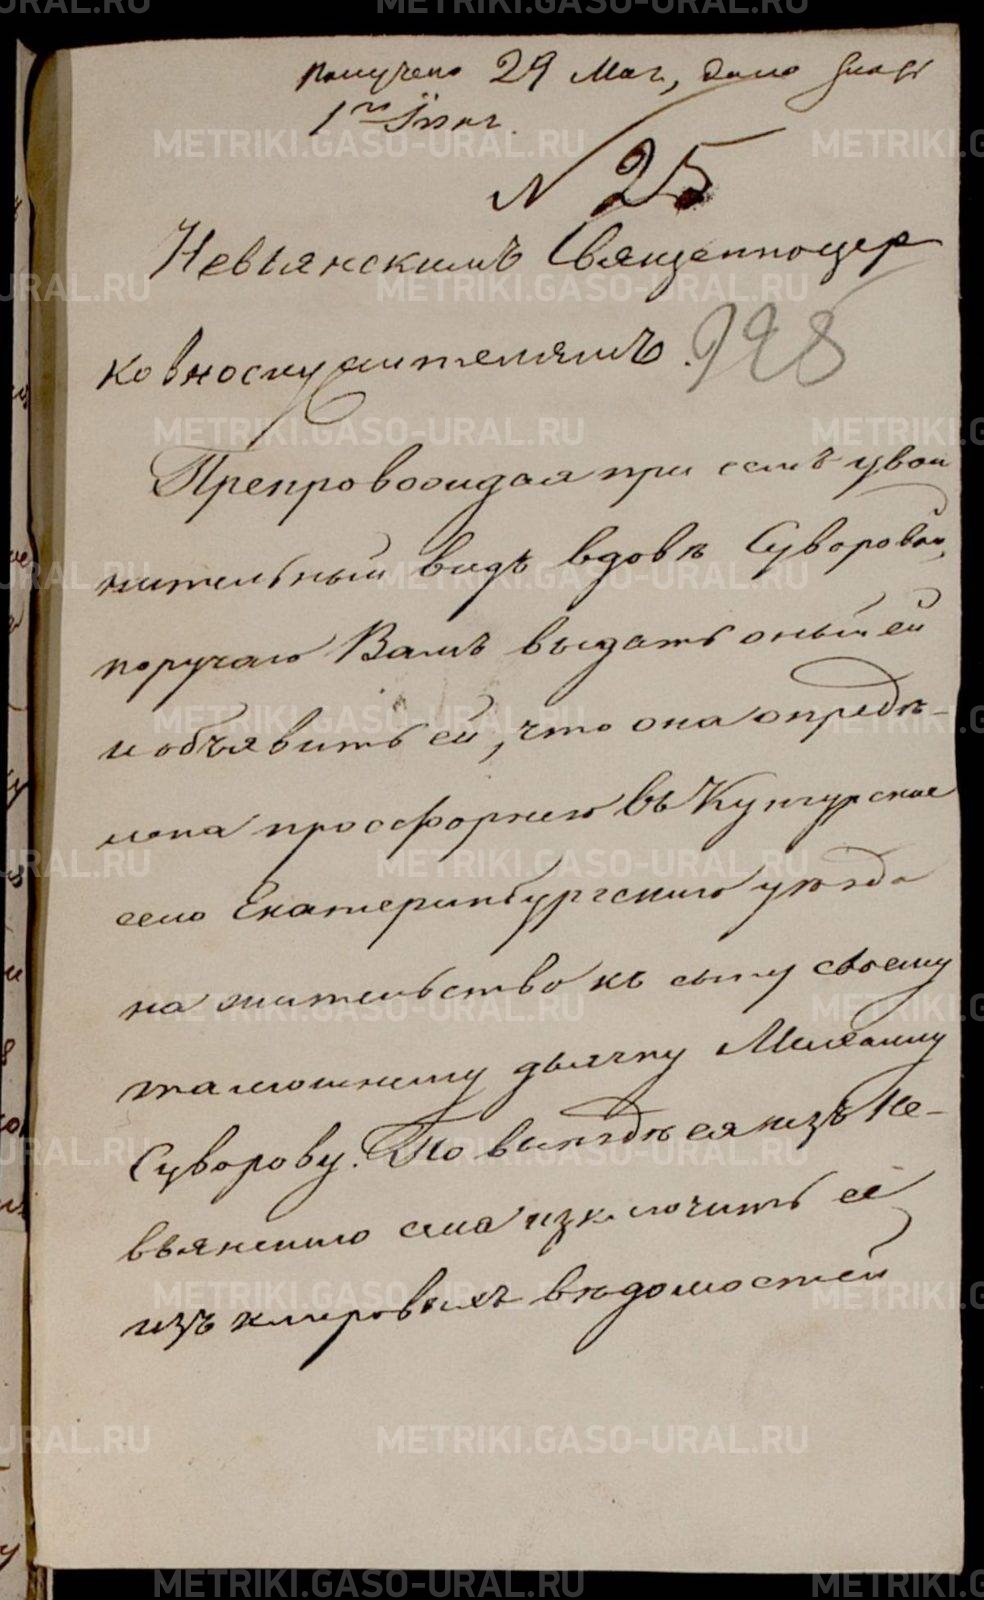 получено 29 Мая, дано знать
1го Іюня.
№ 25
Невьянскимъ Священноцер
ковнослужителямъ. 928
Препровождая при семъ уволь
нительный видъ вдовѣ Суворовой,
поручаю Вамъ выдать оный ей
и объявить ей, что она опредѣ-
лена просфорнею въ Кунгурское
село Екатеринбургскаго уѣзда
на жительство къ сыну своему
тамошнему дьячку
Суворову. По выѣздѣ ея изъ Не-
вьянскаго села изключить ее
изъ клировыхъ вѣдомостей
METRIKI.GASO-URAL.RU